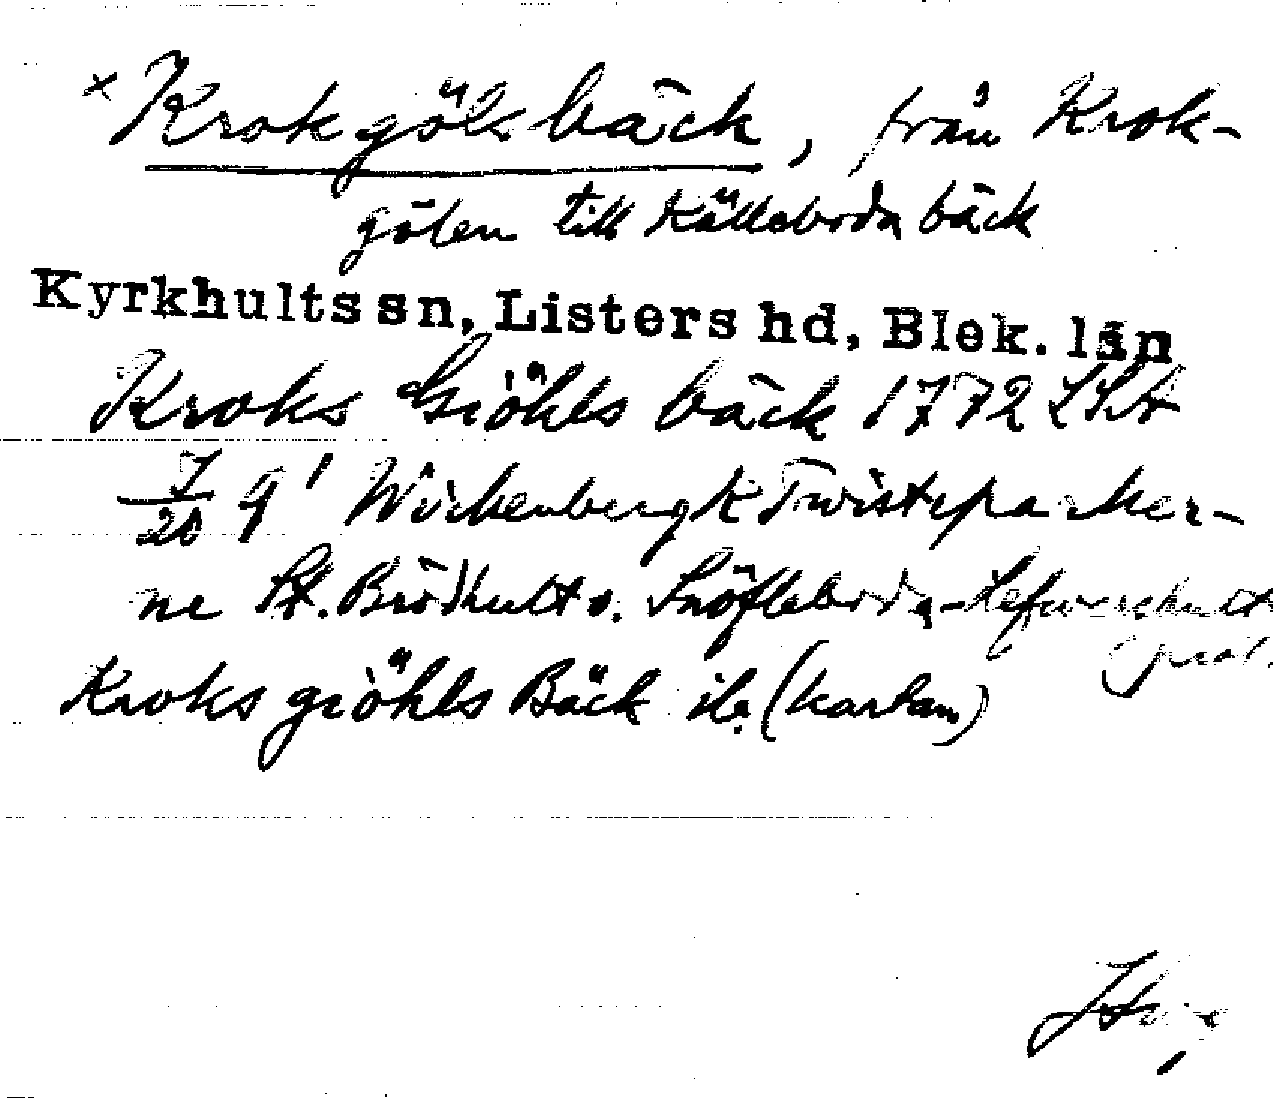 × Krokgölsbäck, från Krok-
gölen till Källeboda bäck
Kyrkhults sn, Listers hd, Blek. län
Kroks Giöhls bäck 1772 LSA
7/20 q' Wirkenbergk Twisteparker-
ne St. Brödhult o. Snöfleboda - Lefwershult
(prot.
Kroks giöhls Bäck ib. (kartan)